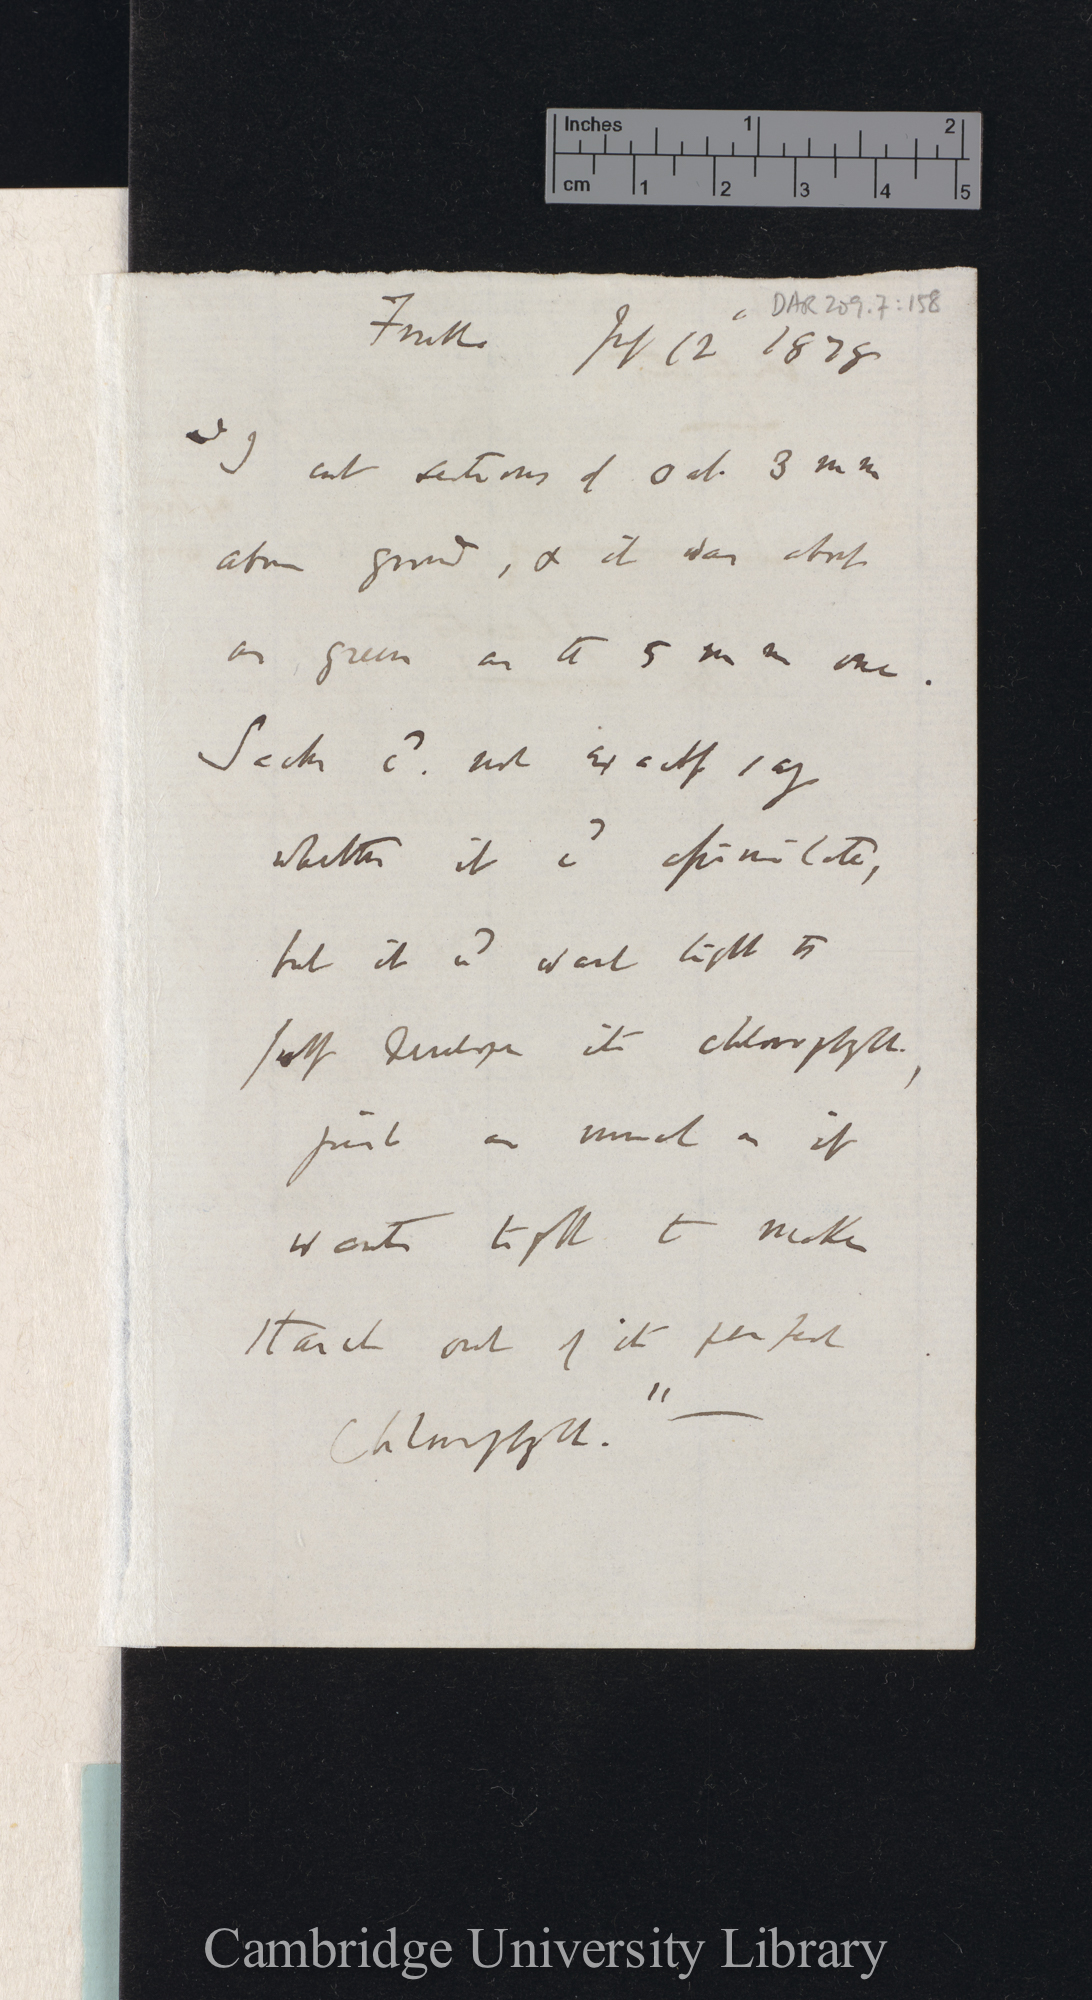 Inches 1 2
cm 1 2 3 4 5
DAR 209.7:158
Frank July 12" 1878
"I
cut sections of oat 3 mm
above ground, & it was about
as green as the 5 mm one.
Sachs cd. not exactly say
whether it cd assimilate,
but it wd want light to
fully develope its chlorophyll,
just as much as it
wants light to make
starch out of its perfect
Chlorophyll."—
Cambridge University Library